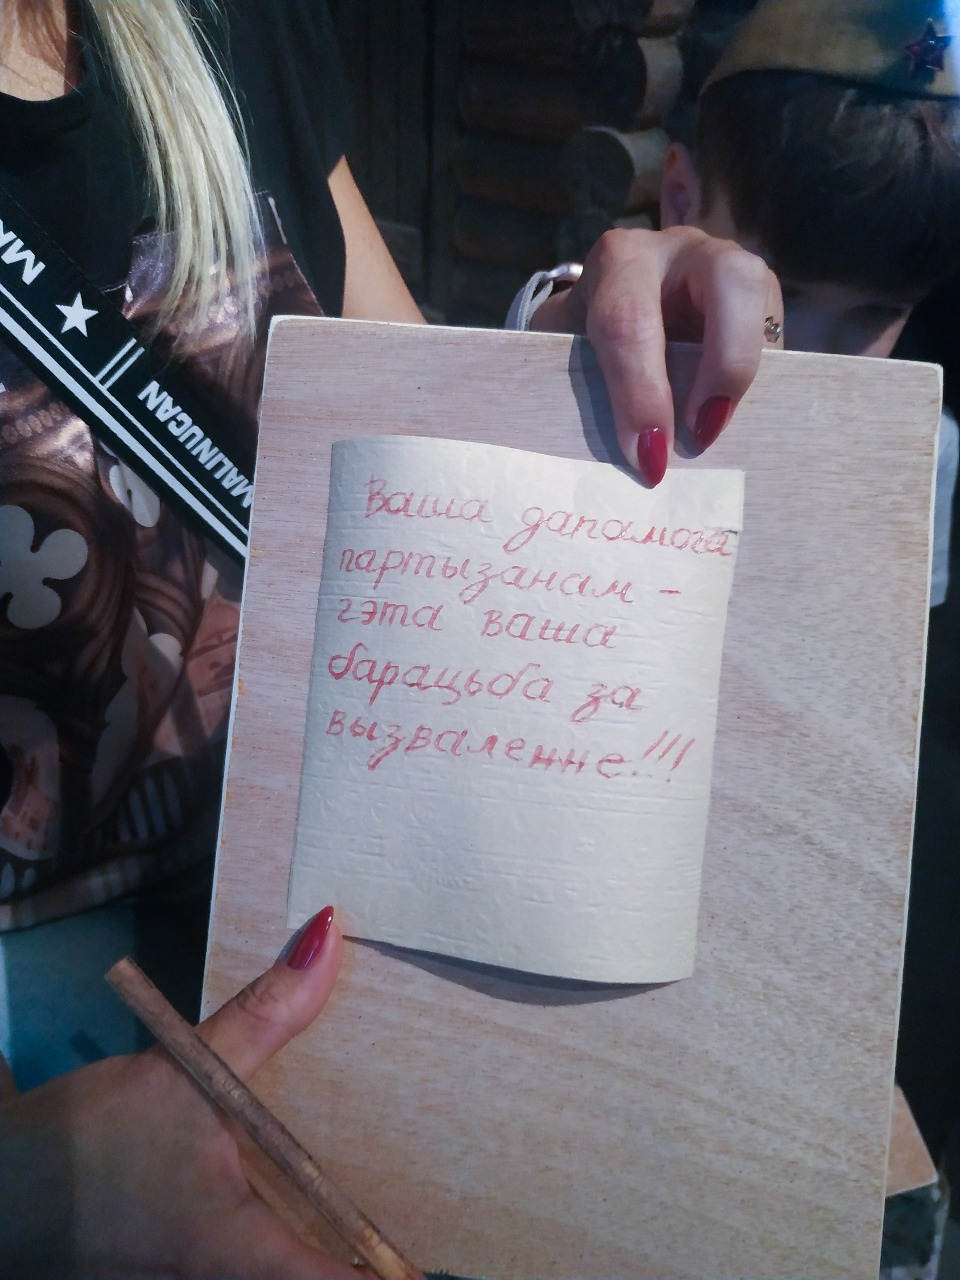 MA
MALINUCAN
Ваша дапамога
партызанам -
гэта ваша
барацьба за
вызваленне!!!